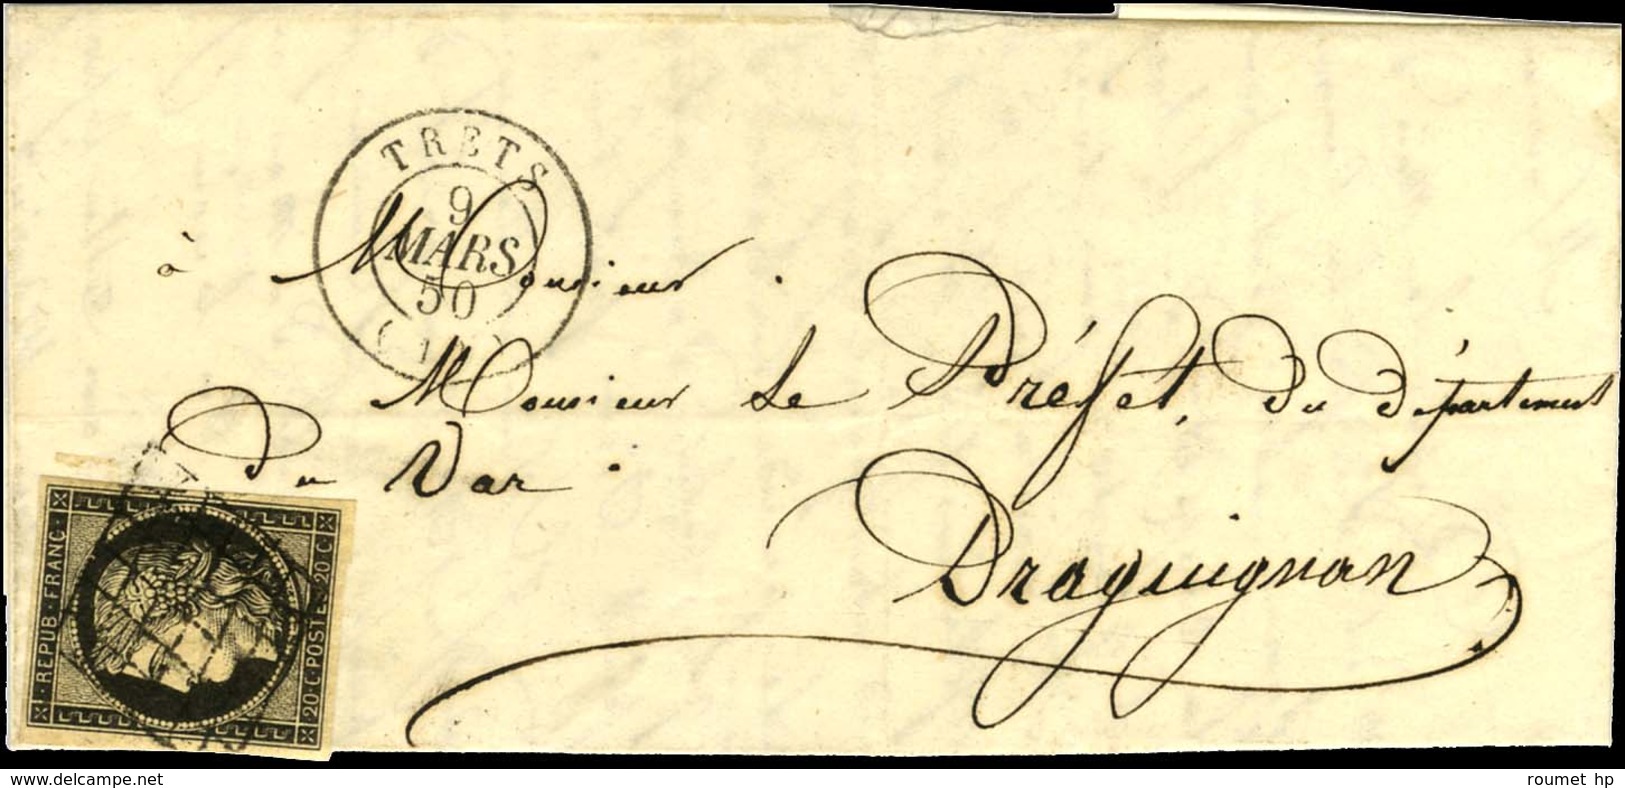 TRETS
9
MARS
50
à Monsieur
Monsieur Le Préfet, du département
du Var
Draguignan
REPUB·FRANC·
20·C·POSTE·20·C
www.delcampe.net
roumet hp